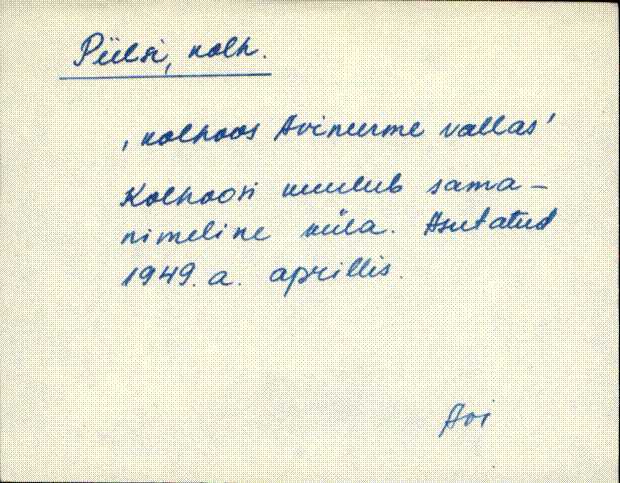 Piilsi, kolh.
, kolhoos Avinurme vallas'
Kolhoosi kuulub sama-
nimeline küla. Asutatud
1949. a. aprillis.
Avi